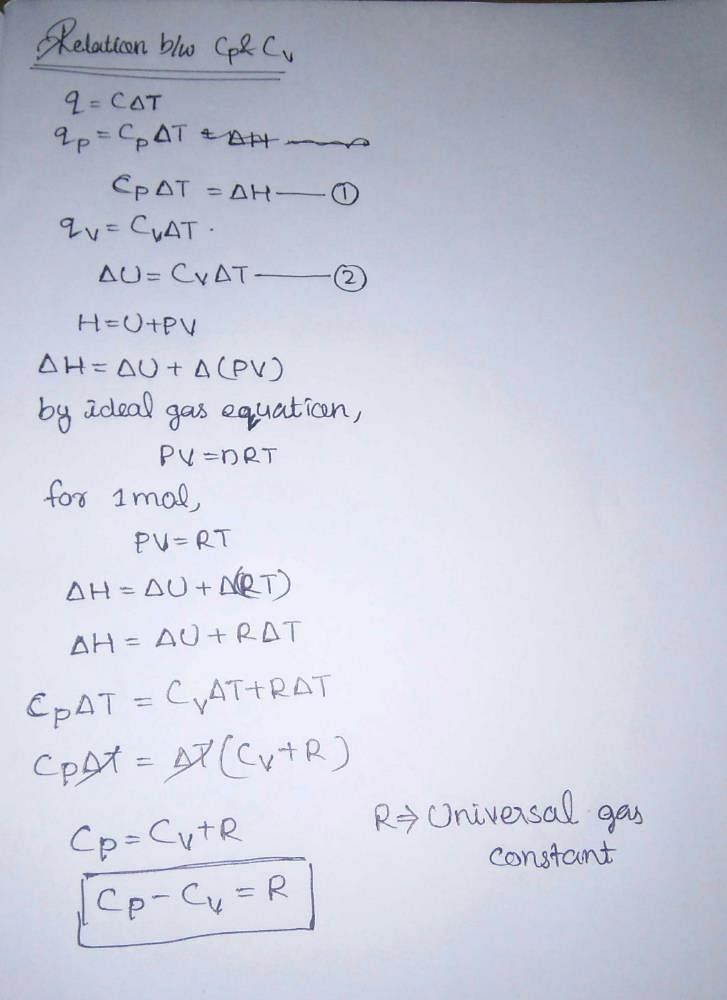 Relation b/w Cp & Cv
q = CΔT
qp = CpΔT = ΔH
CpΔT = ΔH —— ①
qv = CvΔT.
ΔU = CvΔT —— ②
H = U + PV
ΔH = ΔU + Δ(PV)
by ideal gas equation,
PV = nRT
for 1 mol,
PV = RT
ΔH = ΔU + Δ(RT)
ΔH = ΔU + RΔT
CpΔT = CvΔT + RΔT
CpΔT = ΔT(Cv + R)
Cp = Cv + R
Cp - Cv = R
R ⇒ Universal gas
constant